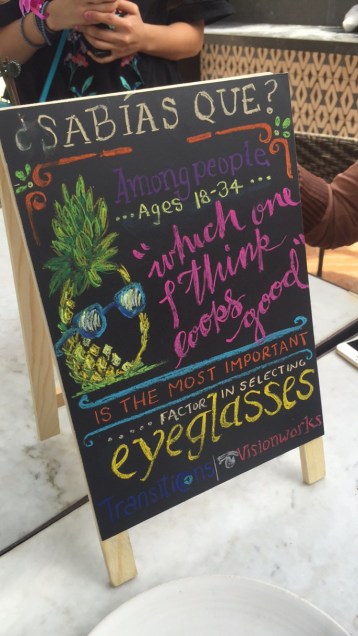 ¿SABÍAS QUE?
Among people
...Ages 18-34...
"which one
I think
looks
good"
IS THE MOST IMPORTANT
FACTOR IN SELECTING
eyeglasses
Transitions | Visionworks